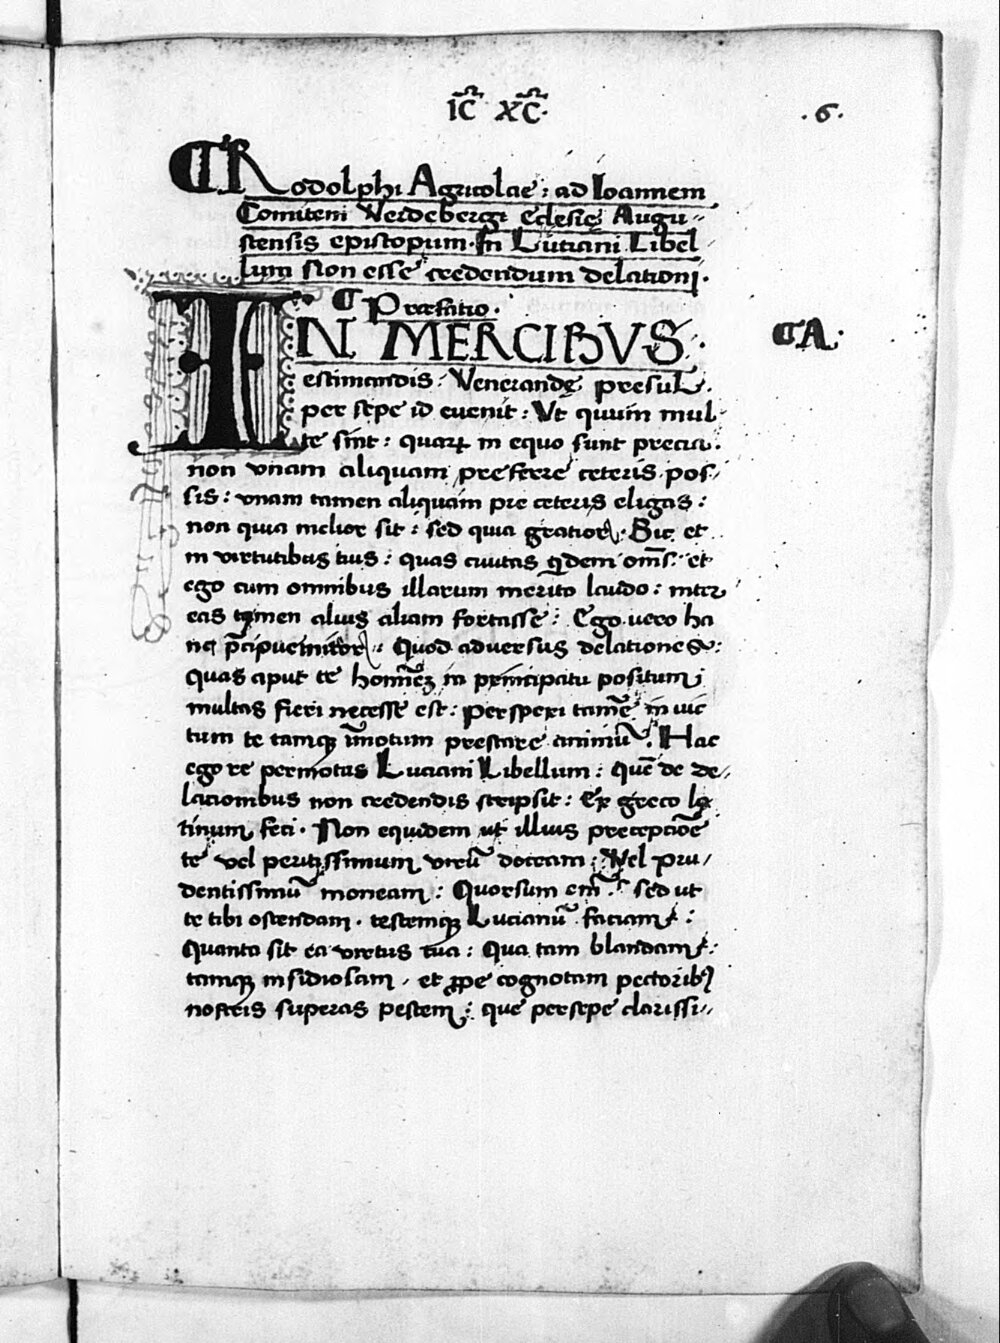 IC̅ XC̅·
. 6 .
¶ Rodolphi Agricolae : ad Ioannem
Comitem Verdebergi Eclesię Augu-
stensis episcopum · In Lutiani Libel
lum Non esse credendum delationi ·
¶ Praefatio ·
IN MERCIBVS ·
¶ A ·
estimandis : Venerandę presul ·
per sepe id euenit : Vt quum mul
te sint : quarꝝ in equo sunt precia ·
non vnam aliquam preferre ceteris pos-
sis : vnam tamen aliquam pre ceteris eligas :
non quia melior sit : sed quia gratior · Sic et
in virtutibus tuis : quas ciuitas qͥdem om̅s : et
ego cum omnibus illarum merito laudo : inter
eas tamen alius aliam fortasse : Ego vero ha
nc p̅cipue miror : Quod aduersus delationes :
quas aput te homine̅ in principatu positum
multas fieri necesse est : Perspexi tame̅ inuic
tum te tamqꝫ i̅motum prestare animu̅ . Hac
ego re permotus Luciani Libellum : que̅ de de-
lacionibus non credendis scripsit : Ex greco la
tinum feci · Non equidem ut illius precepcio̅e
te vel peritissimum viru̅ doceam : Vel pru-
dentissimu̅ moneam : Quorsum em̅ : sed ut
te tibi ostendam · testemqꝫ Lucianu̅ faciam :
Quanta sit ea virtus tua : Qua tam blandam :
tamqꝫ insidiosam , et ꝓpe cognotam pectoribꝰ
nostris superas pestem : que persepe clarissi-